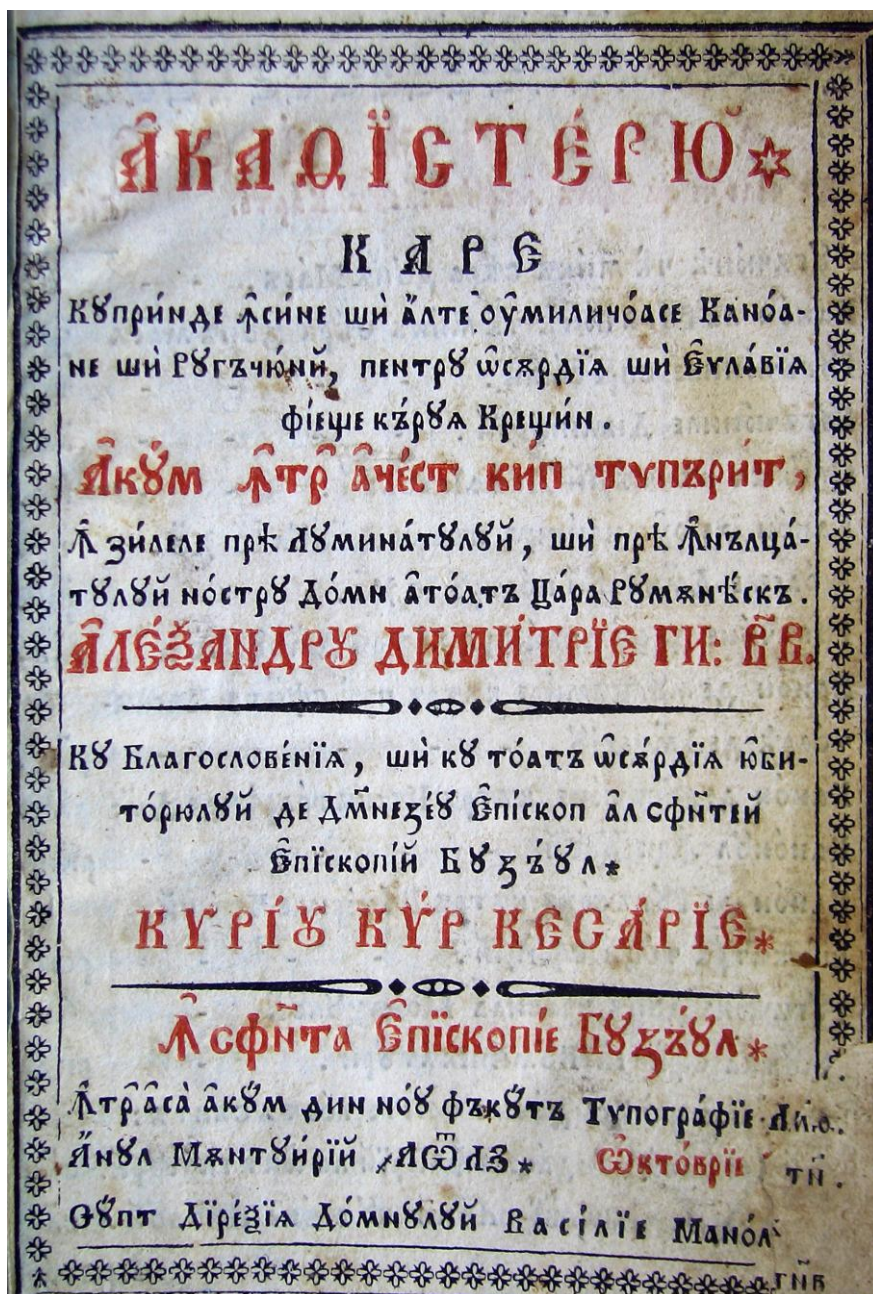 А҆КАѲЇСТЕ́РЮ *
КАРЕ
Кꙋпри́нде ꙟ҆си́не шѝ а҆́лте ᲂу҆миличо́асе Кано́а-
не шѝ Рꙋгъчю́нй, пентрꙋ ѡ҆сѫрдїѧ шѝ Є҆ѵла́вїѧ
фїеще къ́рꙋѧ Крещи́н.
А҆кꙋ́м ꙟ҆тр̑ а҆че́ст ки́п тѵпъри́т,
Ꙟ҆ зи́леле прѣ Лꙋмина́тꙋлꙋй, шѝ прѣ Ꙟ҆нълца́-
тꙋлꙋй но́стрꙋ До́мн а҆то́атъ Цара Рꙋмѫнѣ́скъ.
А҆ЛЕ́ѮАНДРꙊ ДИМИ́ТРЇЕ ГИ: В҃В.
Кꙋ Благослове́нїѧ, шѝ кꙋ то́атъ ѡ҆сѫ́рдїѧ ю҆би-
то́рюлꙋй де Дм҃незе́ꙋ Є҆пі́скоп а҆л сфн҃тей
Є҆пїскопі́й Бꙋзъ́ꙋл *
КѴРІ́Ꙋ КѴ́Р КЕСА́РЇЕ *
Ꙟ҆ сфн҃та Є҆пїскопі́е Бꙋзъ́ꙋл *
Ꙟ҆тр̑ а҆са̀ а҆кꙋм дин но́ꙋ фъкꙋ́тъ Тѵпогра́фїе
А҆́нꙋл Мѫнтꙋи́рїй ҂АѠЛЗ * Ѡ҆кто́врїе
Сꙋ́пт Дїре́ѯїѧ До́мнꙋлꙋй Васі́лїе Мано́л